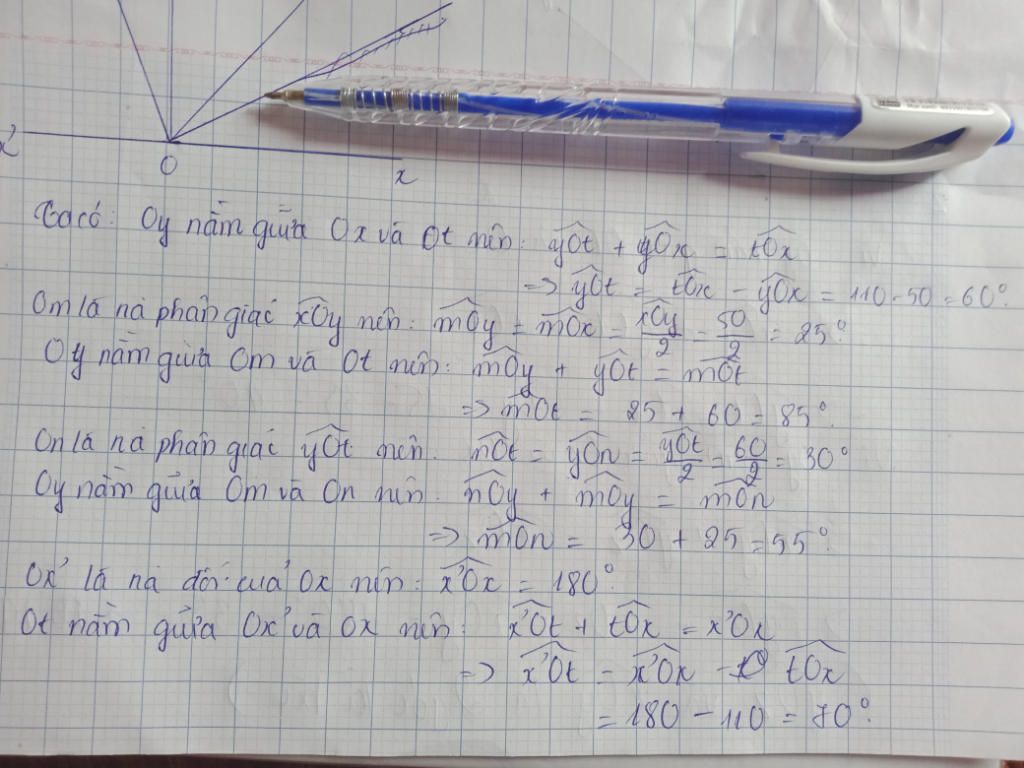 x'
O
x
Ta có: Oy nằm giữa Ox và Ot nên: yOt + yOx = tOx
=> yOt = tOx - yOx = 110 - 50 = 60°.
Om là na phân giác xOy nên: mOy = mOx = xOy/2 = 50/2 = 25°.
Oy nằm giữa Om và Ot nên: mOy + yOt = mOt
=> mOt = 25 + 60 = 85°
On là na phân giác yOt nên. nOt = yOn = yOt/2 = 60/2 = 30°
Oy nằm giữa Om và On nên. nOy + mOy = mOn
=> mOn = 30 + 25 = 55°.
Ox' là na đối của Ox nên: x'Ox = 180°.
Ot nằm giữa Ox' và Ox nên: x'Ot + tOx = x'Ox
=> x'Ot = x'Ox - tOx
= 180 - 110 = 70°.